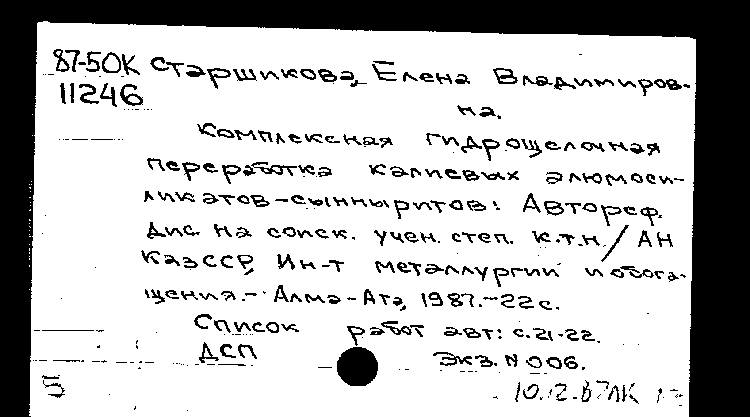 87-5ОК Старшикова, Елена Владимиров-
11246 на.
Комплексная гидрощелочная
переработка калиевых алюмоси-
ликатов-сынныритов: Автореф.
дис. на соиск. учен. степ. к.т.н./АН
КазССР, Ин-т металлургии и обога-
щения.- Алма-Ата, 1987.-22с.
Список работ авт: с.21-22.
ДСП Экз. N 006.
5